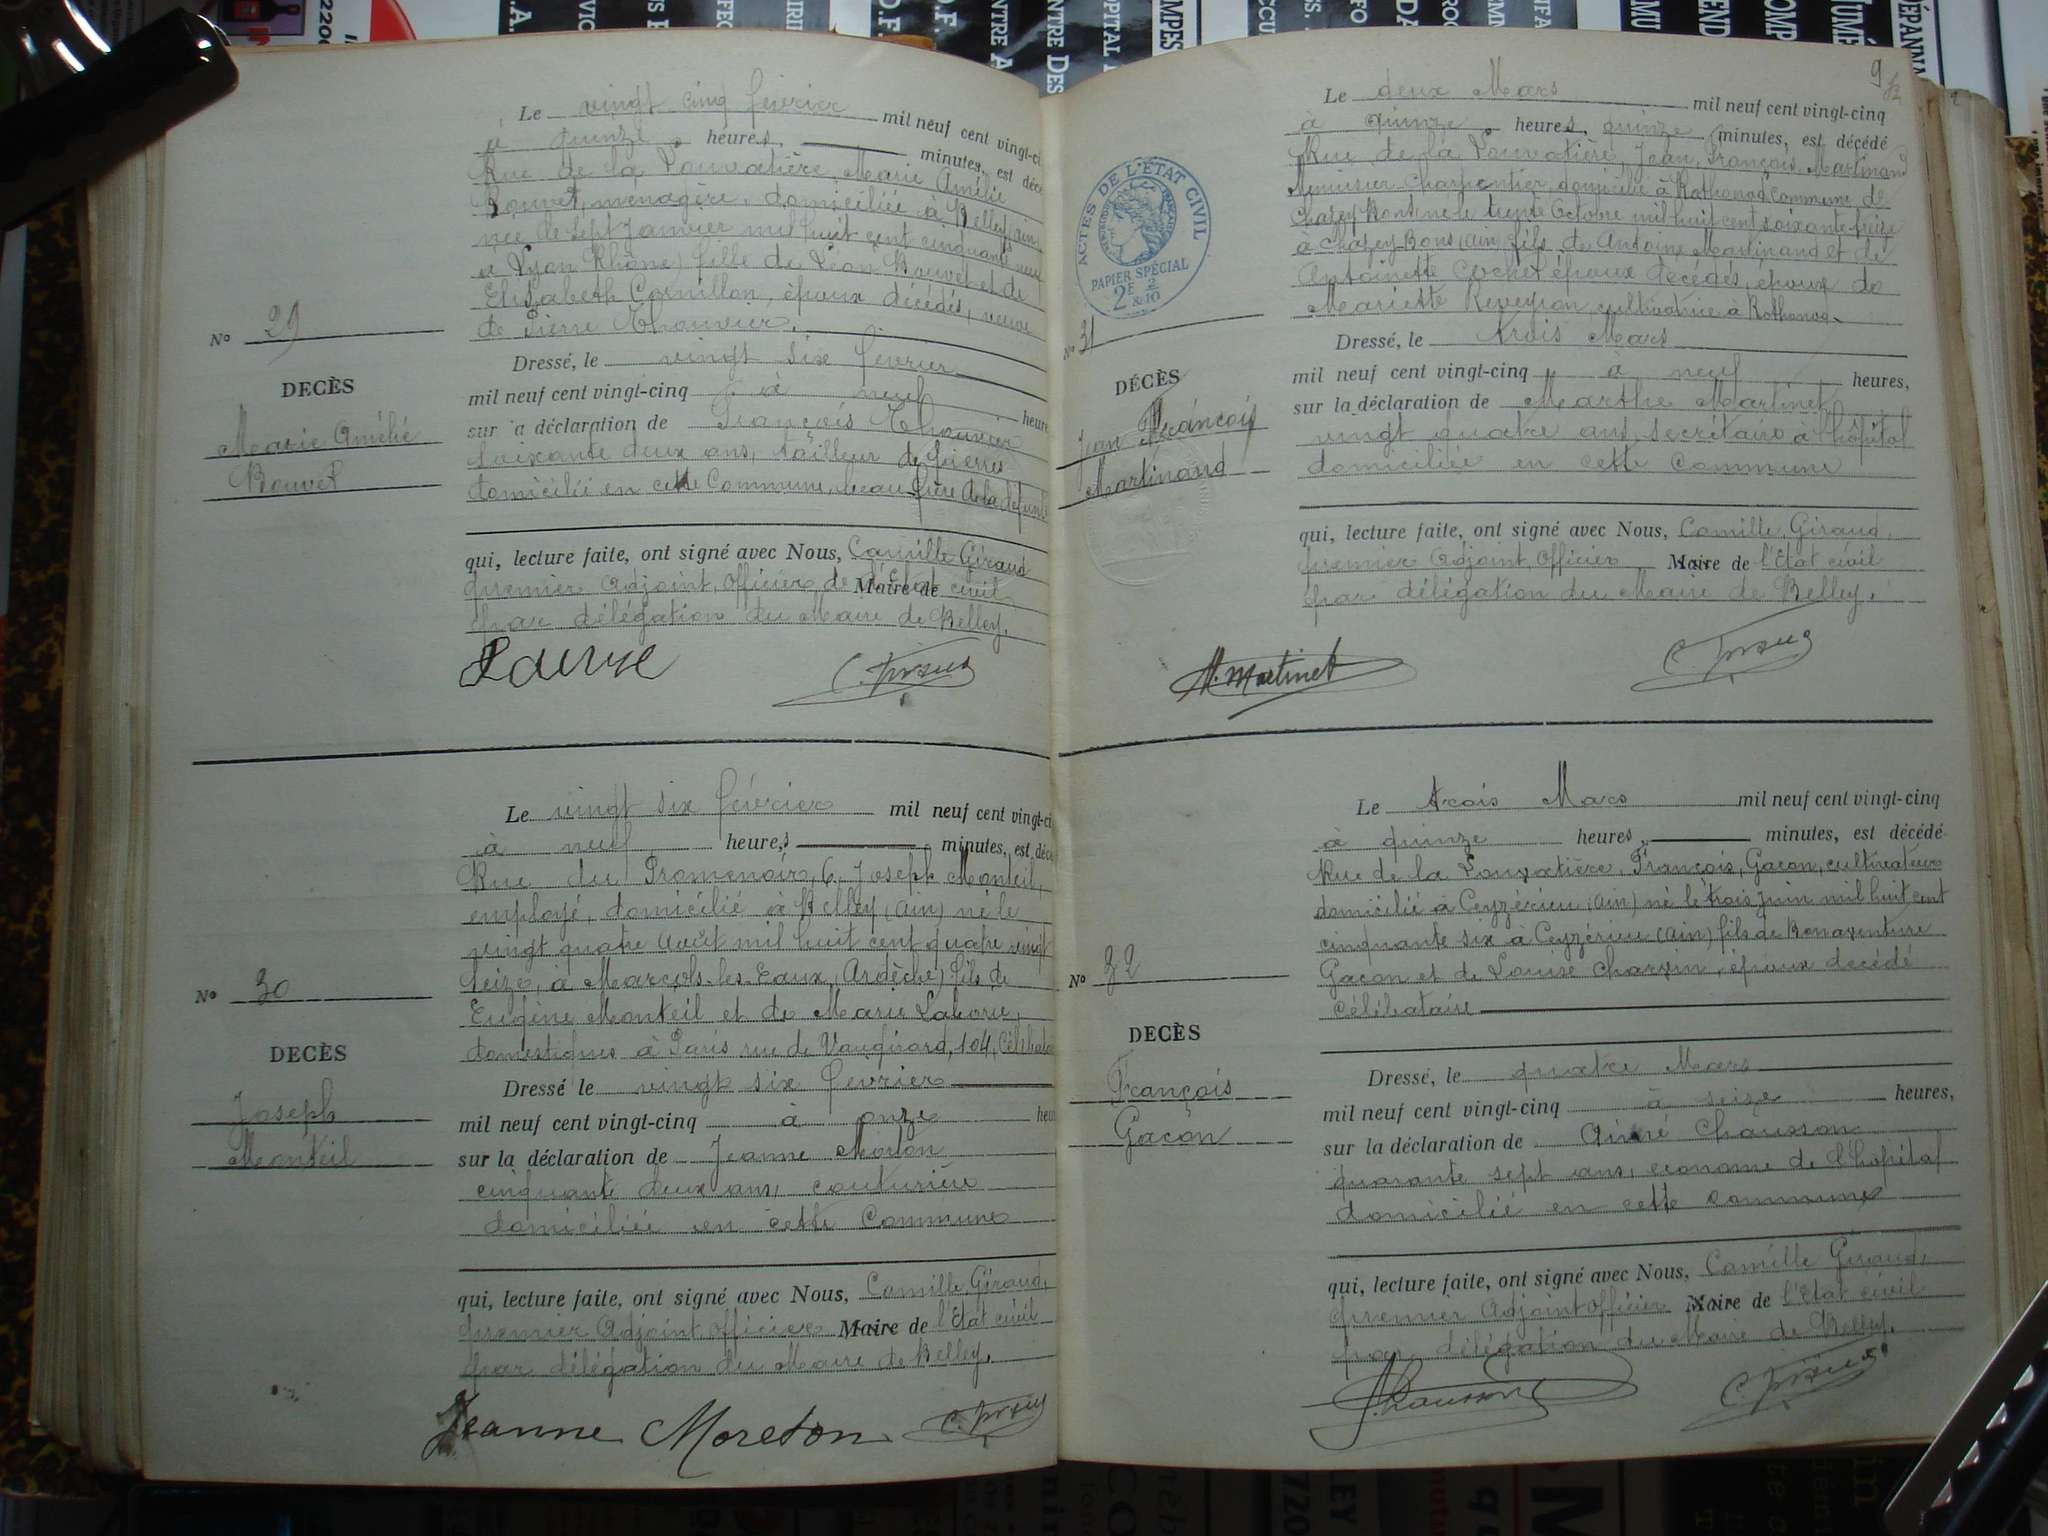 Le vingt cinq février mil neuf cent vingt-ci
à quinze heures, minutes, est décé
Rue de la Louvatière, Marie Amélie
Bouvet, ménagère, domiciliée à Belley (Ain)
née le sept Janvier mil huit cent cinquante neuf
à Lyon (Rhône) fille de Léon Bouvet et de
Elisabeth Cornillon, époux décédés, veuve
de Pierre Thouvier.
No 29
DECÈS
Marie Amélie
Bouvet
Dressé, le vingt six février
mil neuf cent vingt-cinq à neuf heure
sur a déclaration de François Thouvier
soixante deux ans, tailleur de pierres
domicilié en cette Commune, beau frère de la défunte
qui, lecture faite, ont signé avec Nous, Camille Giraud
premier Adjoint, officier de l'Etat civil Maire de
par délégation du Maire de Belley.
C. Giraud
Le vingt six février mil neuf cent vingt-ci
à neuf heures minutes, est décé
Rue du Promenoir, 6, Joseph Monteil,
employé, domicilié à Belley (Ain) né le
vingt quatre août mil huit cent quatre vingt
seize, à Marcols-les-Eaux (Ardèche) fils de
Eugène Monteil et de Marie Laborie,
domestiques à Paris rue de Vaugirard, 104, Célibataire
No 30
DECÈS
Joseph
Monteil
Dressé le vingt six février
mil neuf cent vingt-cinq à onze heu
sur la déclaration de Jeanne Moreton
cinquante deux ans, couturière
domiciliée en cette Commune
qui, lecture faite, ont signé avec Nous, Camille Giraud,
premier Adjoint officier Maire de l'Etat civil
par délégation du Maire de Belley.
Jeanne Moreton C. Giraud
9
Le deux Mars mil neuf cent vingt-cinq
à quinze heures, quinze minutes, est décédé
Rue de la Louvatière, Jean François Martinand
Menuisier Charpentier, domicilié à Rothonod commune de
Chazey-Bons, né le trente Octobre mil huit cent soixante treize
à Chazey-Bons (Ain) fils de Antoine Martinand et de
Antoinette Cochet époux décédés, époux de
Mariette Reveyron, cultivatrice à Rothonod.
ACTES DE L'ÉTAT CIVIL
PAPIER SPÉCIAL
2F & 2/10
No 31
DÉCÈS
Jean François
Martinand
Dressé, le trois Mars
mil neuf cent vingt-cinq à neuf heures,
sur la déclaration de Marthe Martinet
vingt quatre ans, secrétaire à l'hôpital
domiciliée en cette Commune
qui, lecture faite, ont signé avec Nous, Camille Giraud,
premier Adjoint officier Maire de l'Etat civil
par délégation du Maire de Belley.
M. Martinet C. Giraud
Le trois Mars mil neuf cent vingt-cinq
à quinze heures, minutes, est décédé
Rue de la Louvatière, François Gacon, cultivateur
domicilié à Ceyzérieu (Ain) né le trois Juin mil huit cent
cinquante six à Ceyzérieu (Ain) fils de Bonaventure
Gacon et de Louise Charvin, époux décédé
célibataire
No 32
DECÈS
François
Gacon
Dressé, le quatre Mars
mil neuf cent vingt-cinq à seize heures,
sur la déclaration de Aimé Chausson
quarante sept ans, économe de l'hôpital
domicilié en cette commune
qui, lecture faite, ont signé avec Nous, Camille Giraud,
premier Adjoint officier Maire de l'Etat civil
par délégation du Maire de Belley.
Chausson C. Giraud